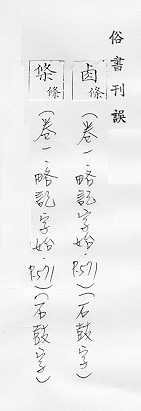 俗書刊誤
鹵條
（卷一．略記字始．P.571）（石鼓字）
條條
（卷一．略記字始．P.571）（石鼓字）